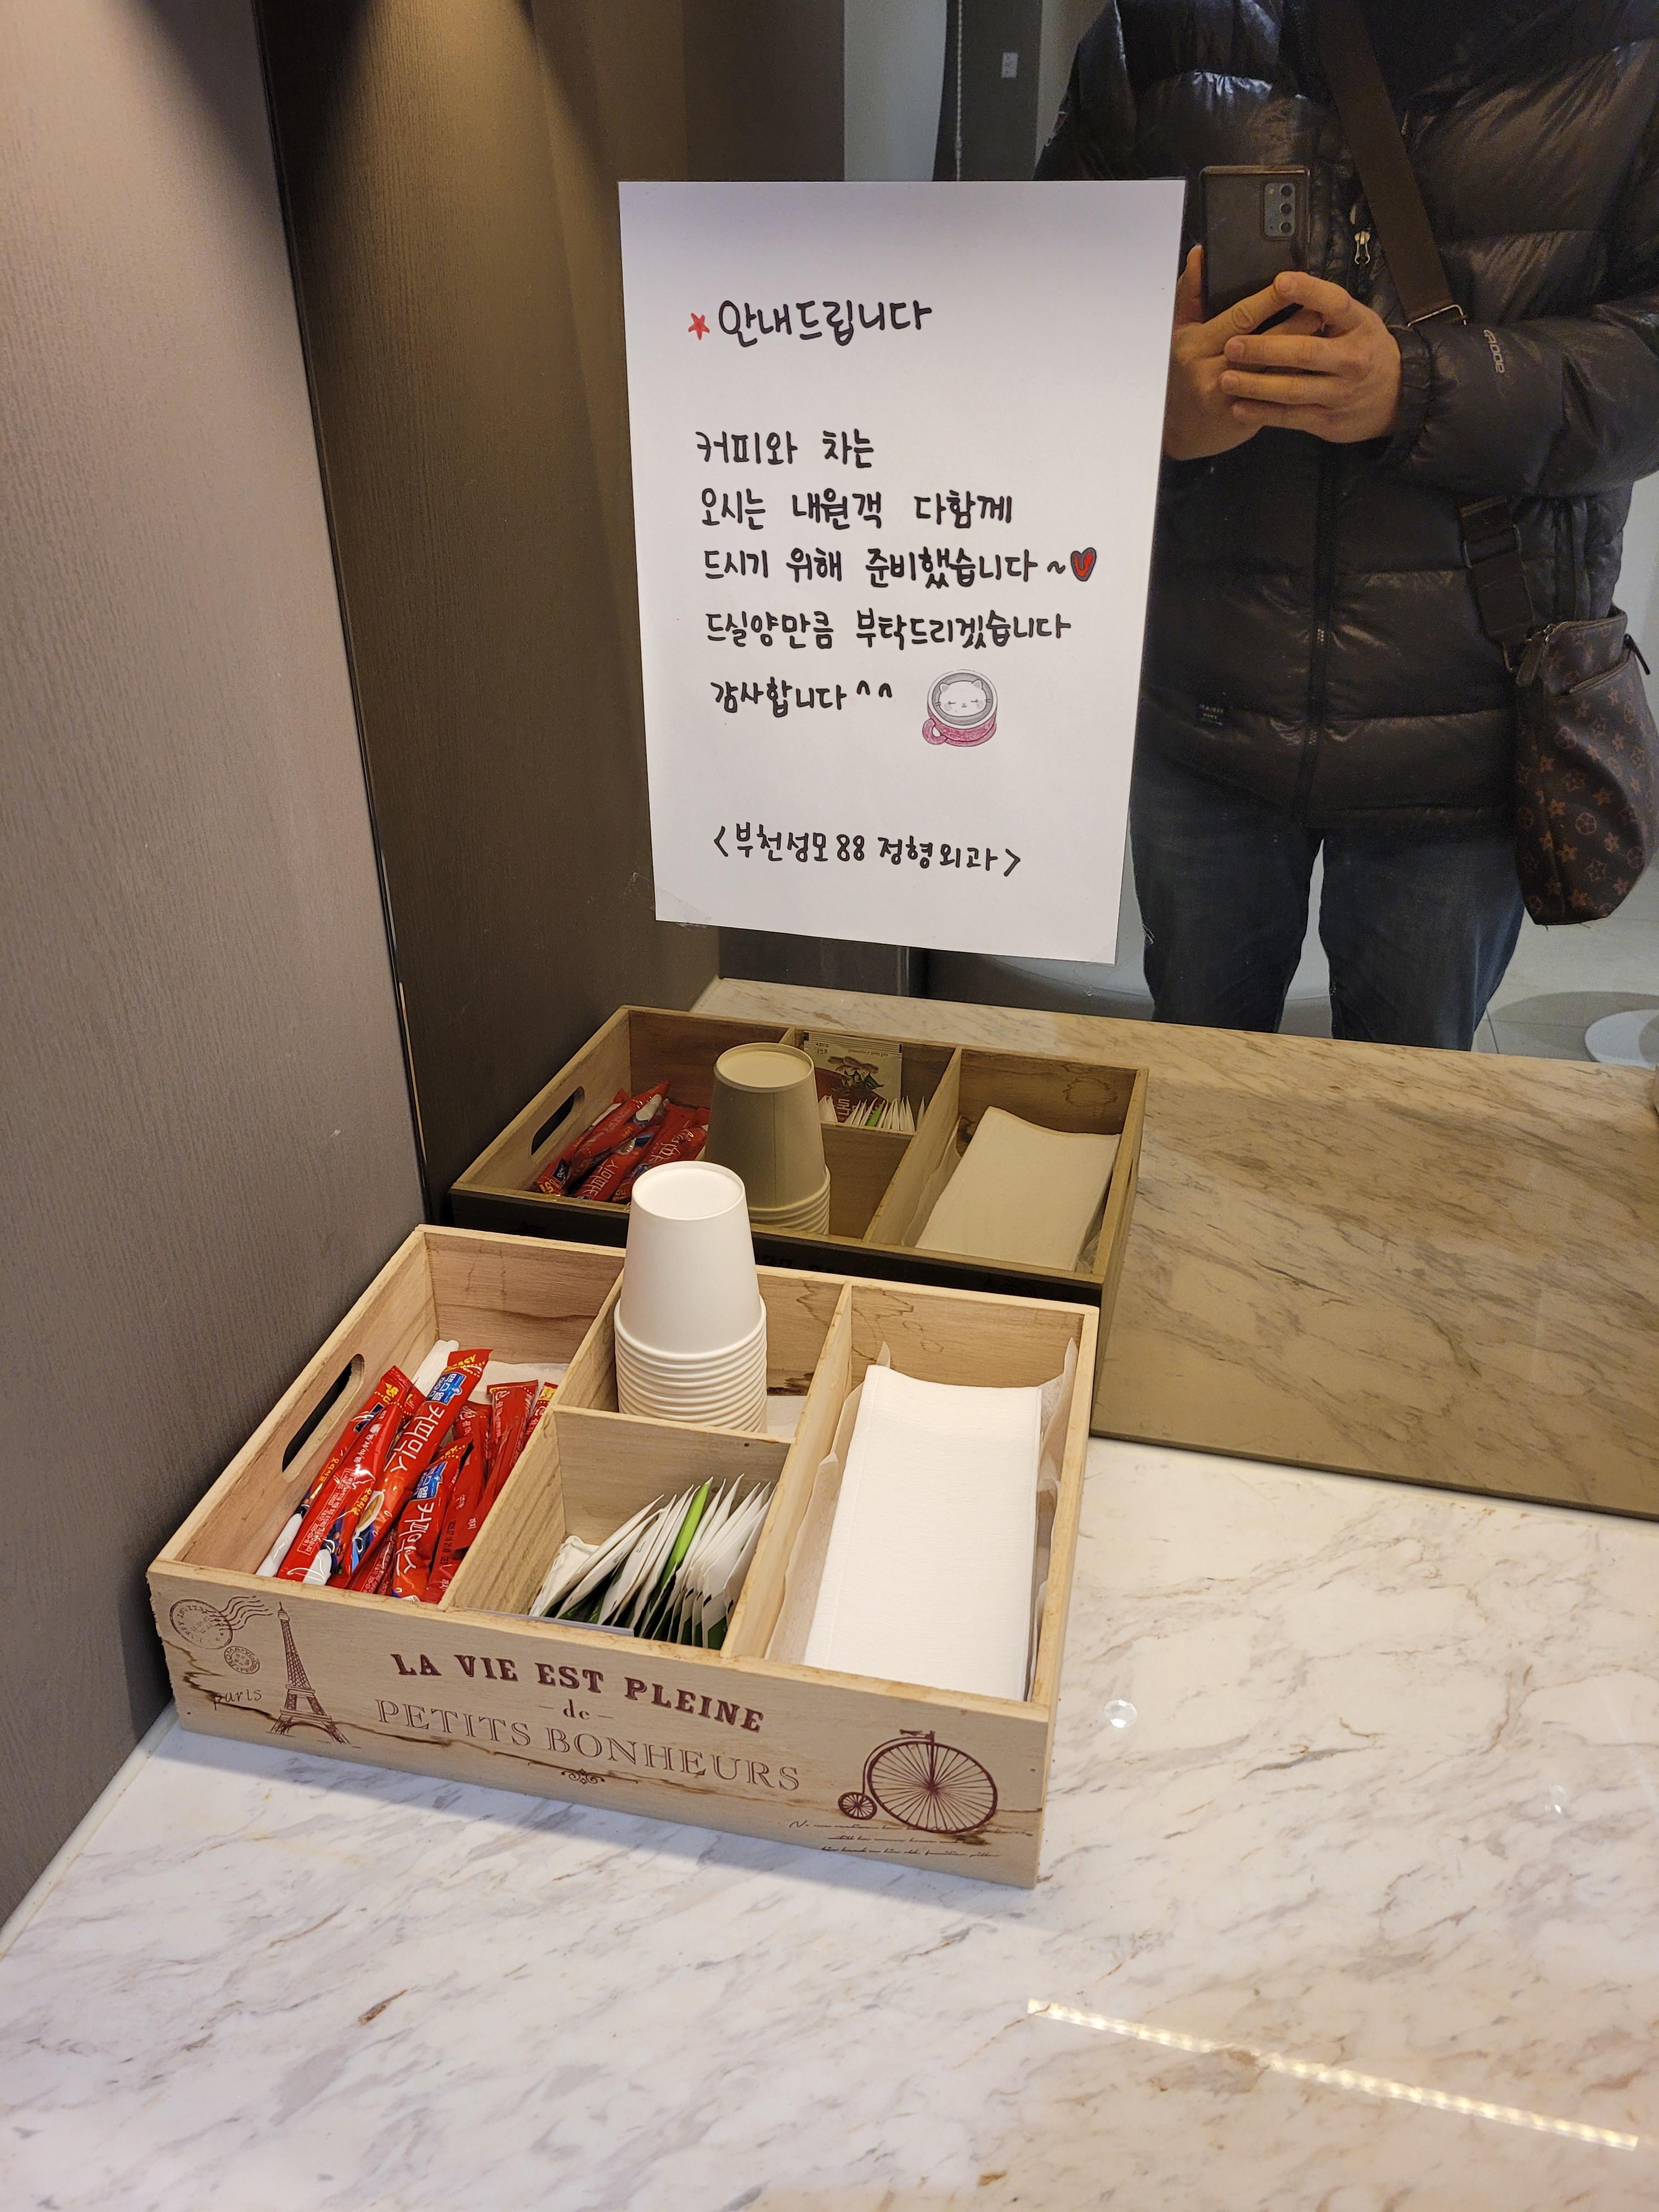 안내드립니다
커피와 차는
오시는 내원객 다함께
드시기 위해 준비했습니다~
드실양만큼 부탁드리겠습니다
감사합니다^^
<부천성모88 정형외과>
커피믹스
커피믹스
paris
LA VIE EST PLEINE
-de-
PETITS BONHEURS